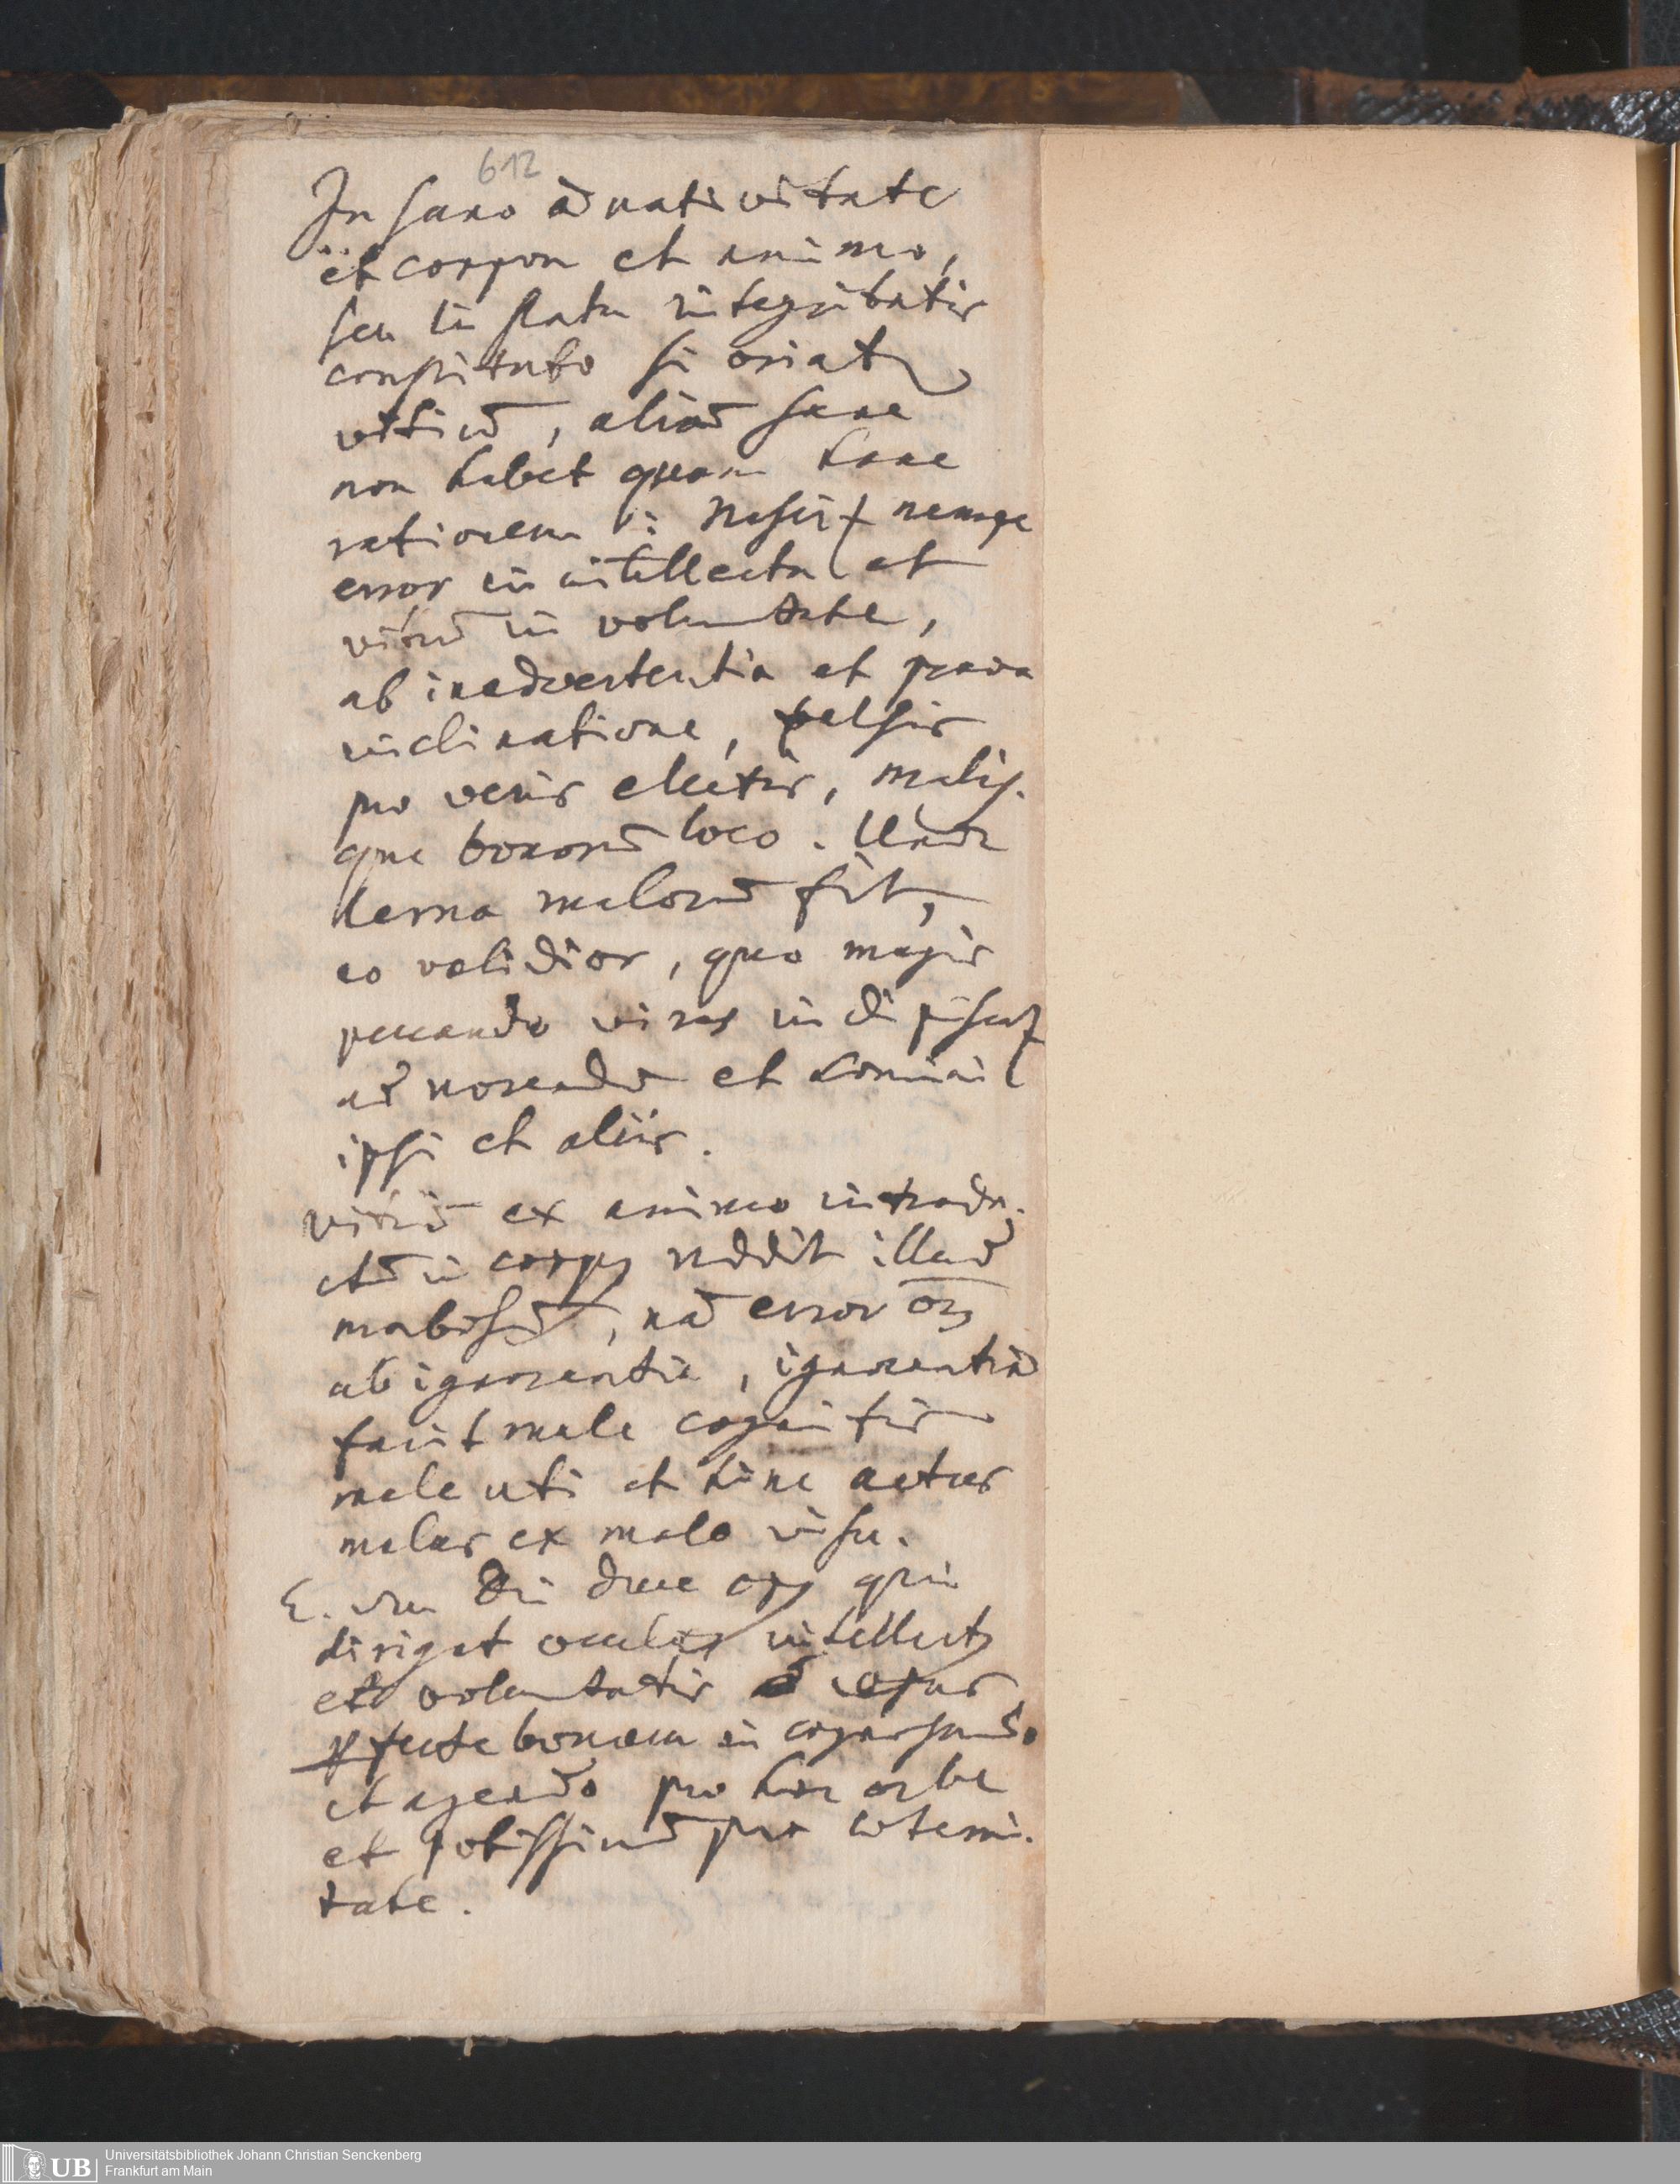 612
In sano à nativitate
et corpore et animo,
seu in statu integritatis
constituto si oriatur
vitiū, aliā sane
non habet quam hanc
rationem: Nascit nempe
error in intellectu et
vitiū in voluntate,
ab inadvertentia et prava
inclinatione, falsis
pro veris electis, malis-
que bonorū loco. Unde
Lerna malorū fit,
eo validior, quo magis
peccando vires indipiscat
ad nocendū et homini
ipsi et aliis.
vitiū ex animo introdu-
ctū in corpus reddit illud
morbosū, nā error
ab ignorantia, ignorantiā
facit male cognitis
male uti et hinc actus
malus ex malo visu.
E. Dei duce opus qui
dirigat oculos intellectus
et voluntatis
bonum in
et agendo pro hoc orbe
et potissimū pro aeterni-
tate.
UB
Universitätsbibliothek Johann Christian Senckenberg
Frankfurt am Main